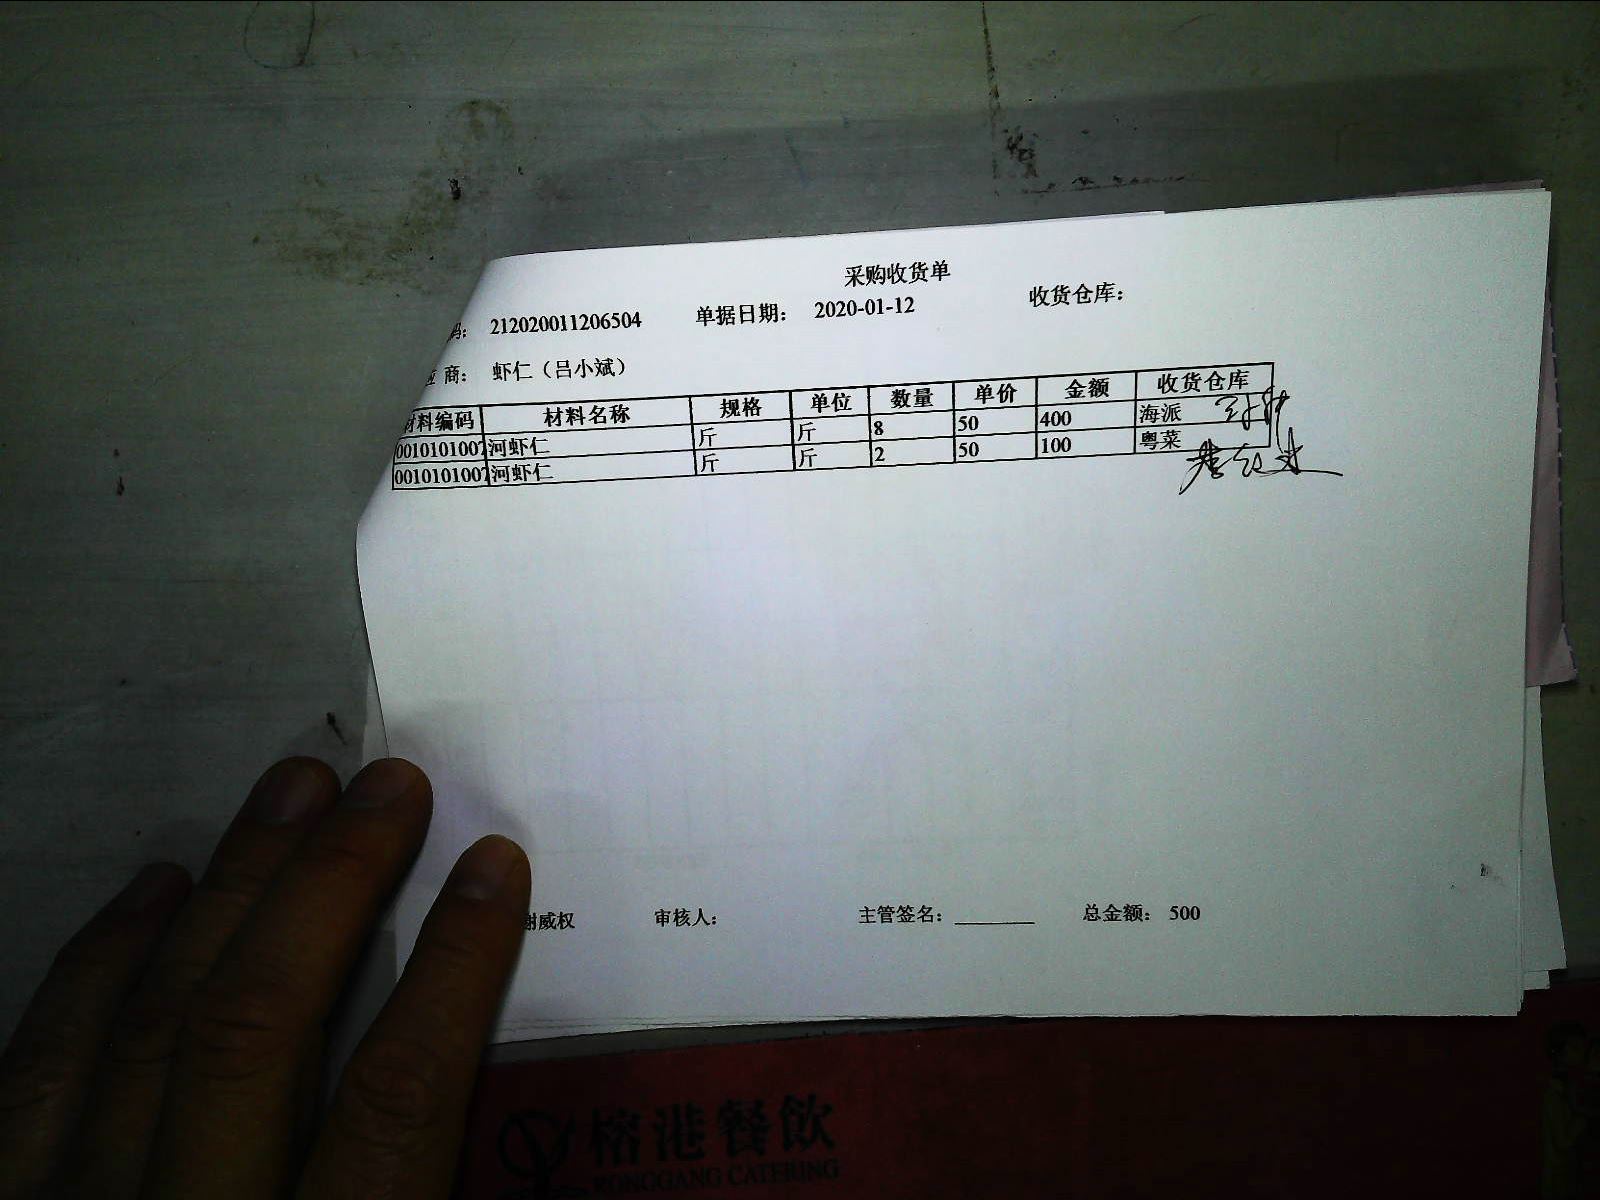 采购收货单
码： 212020011206504 单据日期： 2020-01-12 收货仓库：
应 商： 虾仁（吕小斌）
材料编码 材料名称 规格 单位 数量 单价 金额 收货仓库
0010101007 河虾仁 斤 斤 8 50 400 海派
0010101007 河虾仁 斤 斤 2 50 100 粤菜
谢威权 审核人： 主管签名： 总金额： 500
榕港餐飲
RONGGANG CATERING